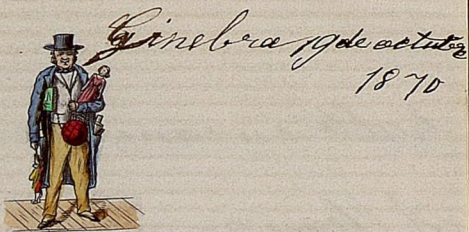 Ginebra 19 de octubre
1870